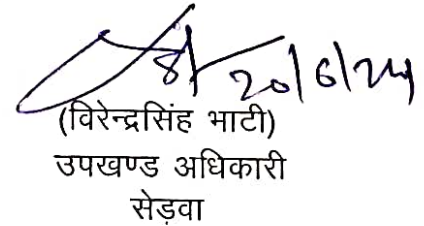 20/6/24
(विरेन्द्रसिंह भाटी)
उपखण्ड अधिकारी
सेड़वा